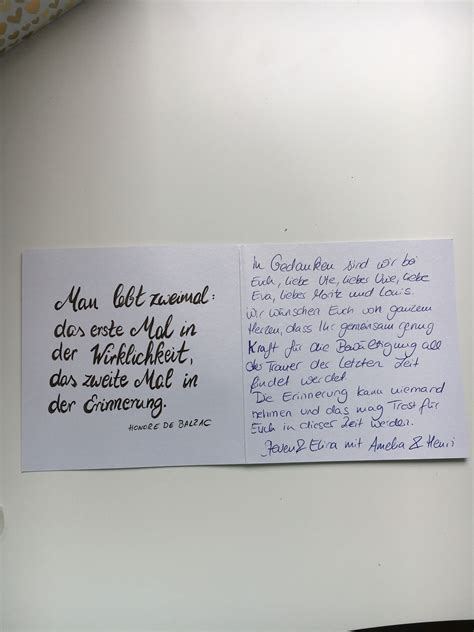 Man lebt zweimal:
das erste Mal in
der Wirklichkeit,
das zweite Mal in
der Erinnerung.
HONORE DE BALZAC
In Gedanken sind wir bei
Euch, liebe Ute, lieber Uwe, liebe
Eva, lieber Moritz und Louis.
Wir wünschen Euch von ganzem
Herzen, dass Ihr gemeinsam genug
Kraft für die Bewältigung all
der Trauer der letzten Zeit
findet werdet.
Die Erinnerung kann niemand
nehmen und das mag Trost für
Euch in dieser Zeit werden.
& Elira mit Amelia & Henri